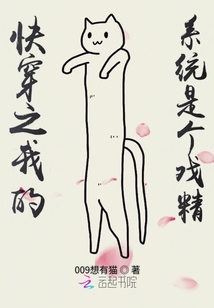 快穿之我的
系统是个戏精
009想有猫◎著
云起书院